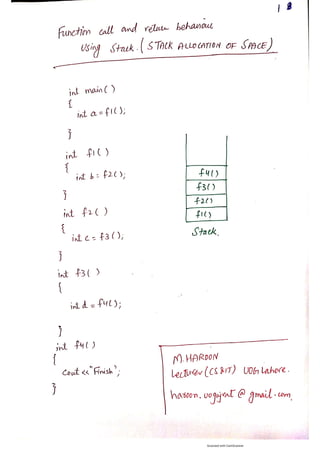 1 8
Function call and return behaviour
Using Stack. (STACK ALLOCATION OF SPACE)
int main()
{
int a = f1();
}
int f1()
{
int b = f2();
}
int f2()
{
int c = f3();
}
int f3()
{
int d = f4();
}
int f4()
{
cout << "Finish";
}
f4()
f3()
f2()
f1()
Stack.
M. HAROON
Lecturer (CS&IT) UOG Lahore.
haroon.uogujrat@gmail.com.
Scanned with CamScanner